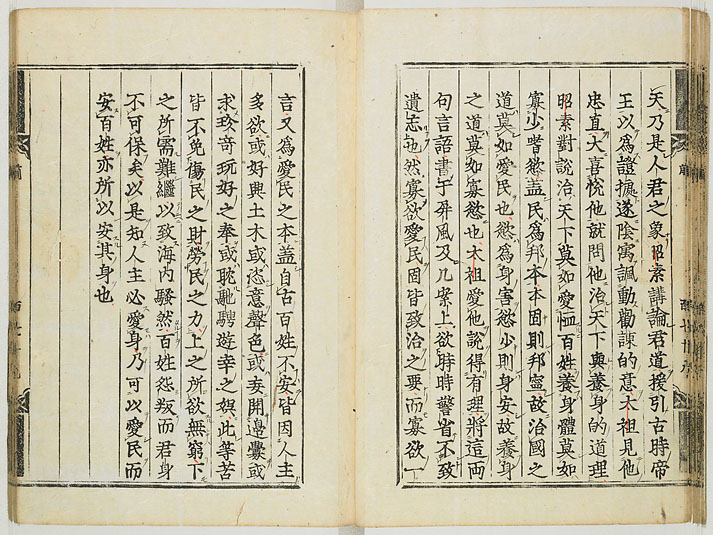 天乃是人君之象昭素講論君道援引古時帝
王以為證據遂陰寓諷動勸諫的意太祖見他
忠直大喜悅他就問他治天下與養身的道理
昭素對說治天下莫如愛恤百姓養身體莫如
寡少嗜慾蓋民為邦本本固則邦寧故治國之
道莫如愛民也慾為身害慾少則身安故養身
之道莫如寡慾也太祖愛他說得有理將這兩
句言語書于屏風及几案上欲時時警省不致
遺忘也然寡欲愛民固皆致治之要而寡欲一
言又為愛民之本蓋自古百姓不安皆因人主
多欲或好興土木或恣意聲色或妄開邊釁或
求珍奇玩好之奉或耽馳騁遊幸之娛此等苦
皆不免傷民之財勞民之力上之所欲無窮下
之所需難繼以致海內騷然百姓怨叛而君身
不可保矣以是知人主必愛身乃可以愛民而
安百姓亦所以安其身也